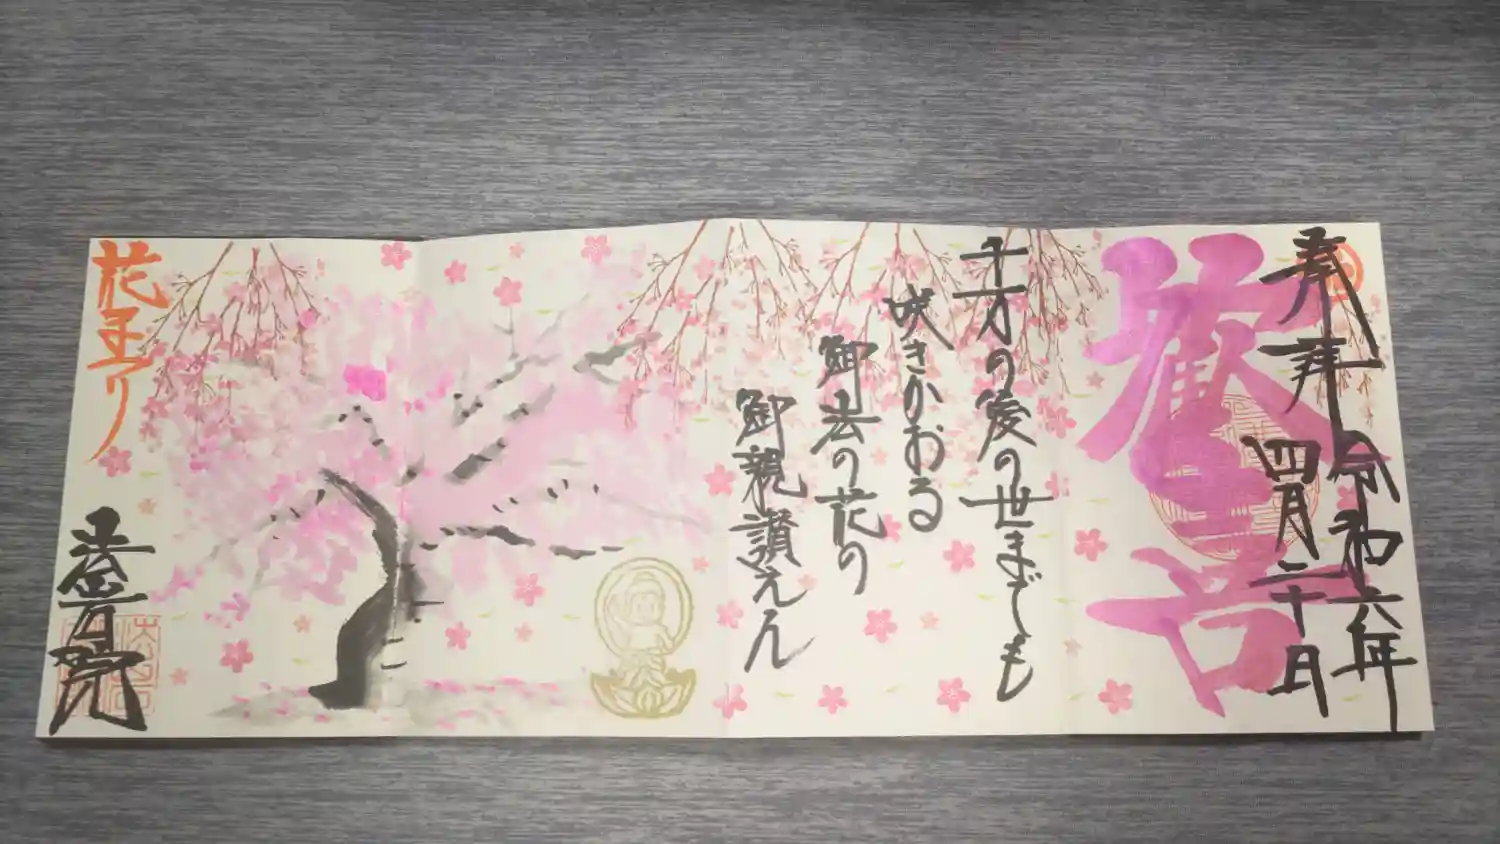 奉拝 令和六年
四月二十日
千万の後の世までも
咲きかおる
御法の花の
御親讃えん
花まつり